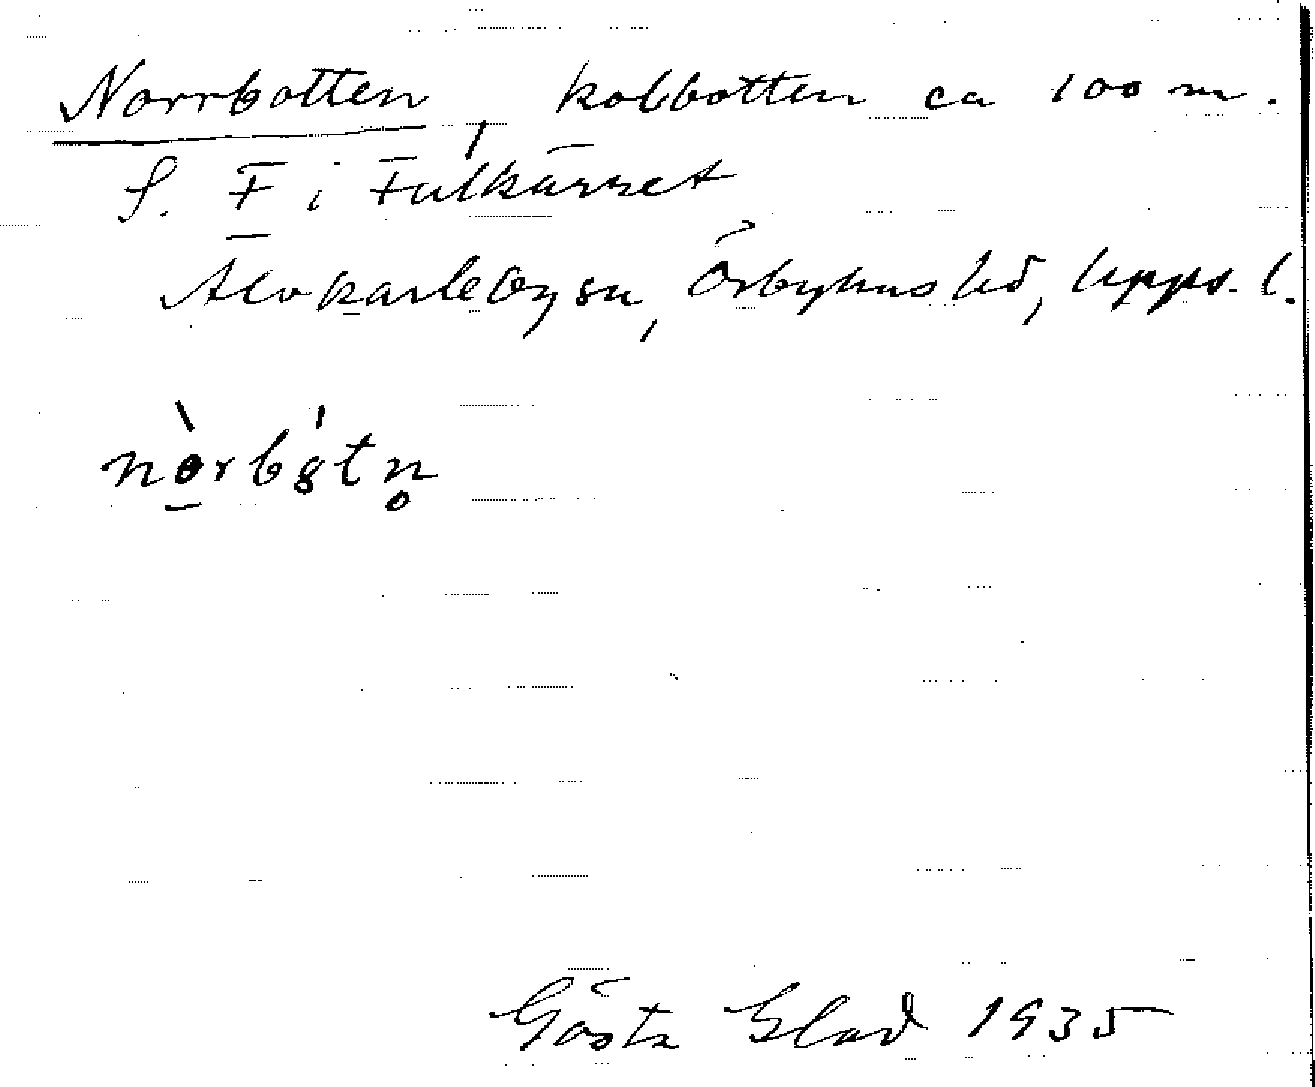 Norrbotten, kolbotten ca 100 m.
S. F i Fulkärret
Älvkarleby sn, Örbyhus hd, Upps. l.
nòrbótn̥
Gösta Blad 1935